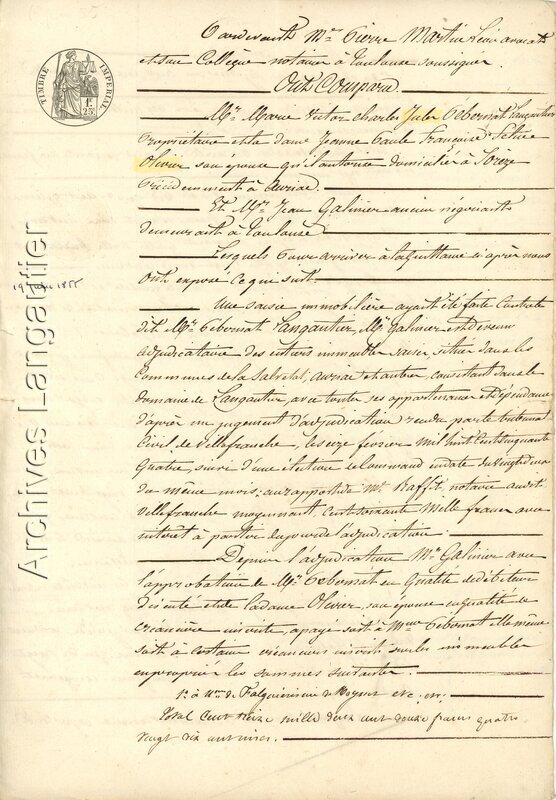 TIMBRE IMPERIAL
1 F. 25 C.
Pardevant Me Pierre Martin avocat
et son Collègue notaire à Toulouse soussignés.
Ont Comparu.
Mr. Marie Victor Charles Jules Gebernat Langautier
Propriétaire et la dame Jeanne Paule Françoise
Olivier son épouse qu'il autorise domiciliés à Sorèze
Précédemment à Auriac.
Et Mr. Jean Galinier ancien négociant
demeurant à Toulouse.
Lesquels pour arriver à la quittance ci après nous
Ont exposé ce qui suit.
19 1855
Une saisie immobilière ayant été faite Contre le
dit Mr. Gebernat Langautier, Mr. Galinier est devenu
adjudicataire des entiers immeubles saisis, situés dans les
Communes de la Salvetat, Auriac et autres, consistant dans le
domaine de Langautier, avec toutes ses appartenances et dépendances
d'après un jugement d'adjudication rendu par le tribunal
Civil de Villefranche, le seize février mil huit cent cinquante
Quatre, suivi d'une élection de Command en date du vingt deux
du même mois, au rapport de Me. Raffit, notaire audit
Villefranche moyennant Cent soixante Mille francs avec
intérêt à partir du jour de l'adjudication.
Depuis l'adjudication Mr. Galinier avec
l'approbation de Mr. Gebernat en Qualité de débiteur
discuté et de la dame Olivier, son épouse en qualité de
créancière inscrite, a payé soit à Mme Gebernat elle même
soit à certains créanciers inscrits sur les immeubles
expropriés les sommes suivantes.
1° à Mr. de Falguerolles etc. etc.
Total Cent treize mille deux cent douze francs quatre
vingt dix centimes.
Archives Langautier